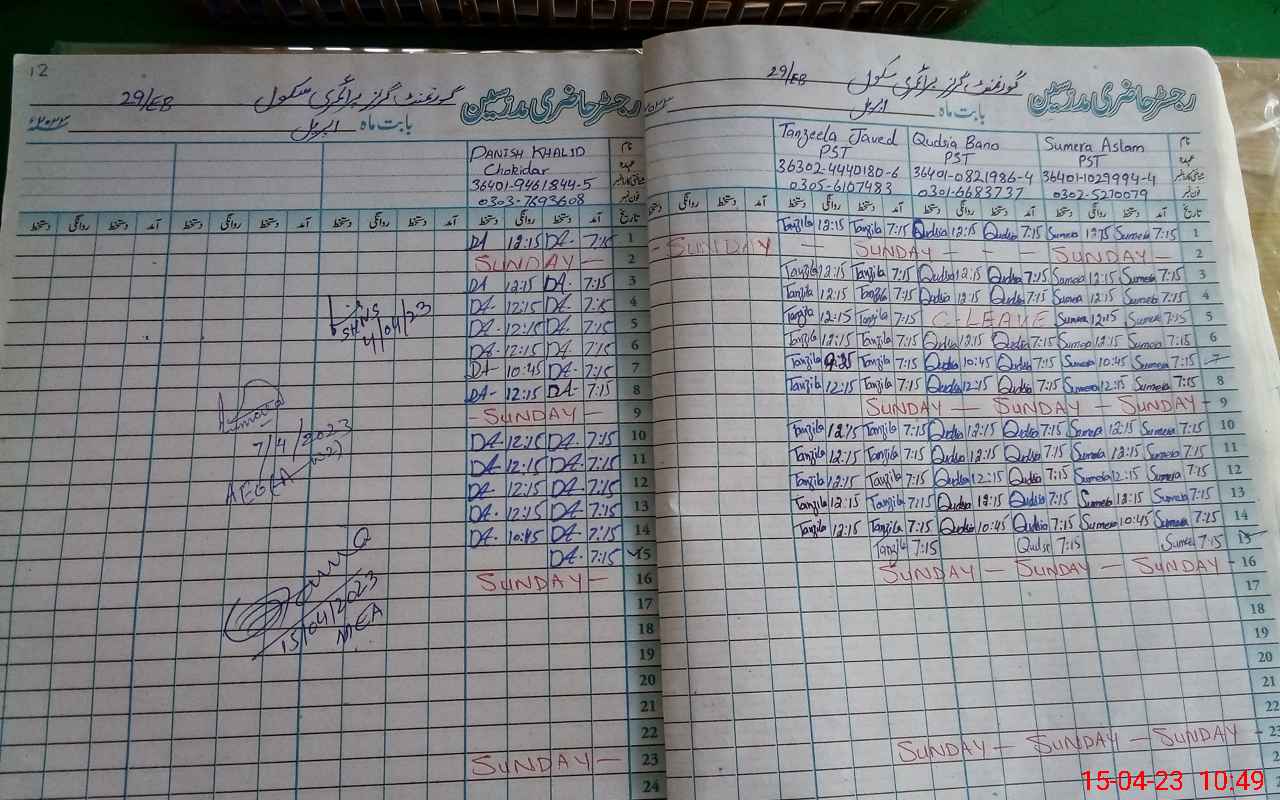 12
29/EB گورنمنٹ گرلز پرائمری سکول رجسٹر حاضری مدرسین
اپریل بابت ماہ
DANISH KHALID
Chokidar
36401-9461844-5
0303-7693608
دستخط روانگی دستخط آمد دستخط روانگی دستخط آمد دستخط روانگی دستخط آمد دستخط روانگی دستخط آمد تاریخ
DA 12:15 DA- 7:15 1
SUNDAY — 2
DA 12:15 DA- 7:15 3
DA- 12:15 DA- 7:15 4
DA- 12:15 DA- 7:15 5
DA- 12:15 DA- 7:15 6
DA- 10:45 DA- 7:15 7
DA- 12:15 DA- 7:15 8
— SUNDAY — 9
DA- 12:15 DA- 7:15 10
DA- 12:15 DA- 7:15 11
DA- 12:15 DA- 7:15 12
DA- 12:15 DA- 7:15 13
DA- 10:45 DA- 7:15 14
DA- 7:15 15
SUNDAY — 16
17
18
19
20
21
22
SUNDAY — 23
24
4/04/23
7/4/2023
15/04/2023
MEA
29/EB گورنمنٹ گرلز پرائمری سکول رجسٹر حاضری مدرسین
اپریل بابت ماہ
Tanzeela Javed Qudsia Bano Sumera Aslam نام
PST PST PST عہدہ
36302-4440180-6 36401-0821986-4 36401-1029994-4
0305-6107483 0301-6683737 0302-5270079 فون نمبر
دستخط روانگی دستخط آمد دستخط روانگی دستخط آمد دستخط روانگی دستخط آمد دستخط روانگی دستخط آمد تاریخ
Tanzila 12:15 Tanzila 7:15 Qudsia 12:15 Qudsia 7:15 Sumera 12:15 Sumera 7:15 1
- SUNDAY — SUNDAY - - - SUNDAY — 2
Tanzila 12:15 Tanzila 7:15 Qudsia 12:15 Qudsia 7:15 Sumera 12:15 Sumera 7:15 3
Tanzila 12:15 Tanzila 7:15 Qudsia 12:15 Qudsia 7:15 Sumera 12:15 Sumera 7:15 4
Tanzila 12:15 Tanzila 7:15 C-LEAVE Sumera 12:15 Sumera 7:15 5
Tanzila 12:15 Tanzila 7:15 Qudsia 12:15 Qudsia 7:15 Sumera 12:15 Sumera 7:15 6
Tanzila Tanzila 7:15 Qudsia 10:45 Qudsia 7:15 Sumera 10:45 Sumera 7:15 7
Tanzila 12:15 Tanzila 7:15 Qudsia 12:15 Qudsia 7:15 Sumera 12:15 Sumera 7:15 8
SUNDAY — SUNDAY — SUNDAY — 9
Tanzila 12:15 Tanzila 7:15 Qudsia 12:15 Qudsia 7:15 Sumera 12:15 Sumera 7:15 10
Tanzila 12:15 Tanzila 7:15 Qudsia 12:15 Qudsia 7:15 Sumera 12:15 Sumera 7:15 11
Tanzila 12:15 Tanzila 7:15 Qudsia 12:15 Qudsia 7:15 Sumera 12:15 Sumera 7:15 12
Tanzila 12:15 Tanzila 7:15 Qudsia 12:15 Qudsia 7:15 Sumera 12:15 Sumera 7:15 13
Tanzila 12:15 Tanzila 7:15 Qudsia 10:45 Qudsia 7:15 Sumera 10:45 Sumera 7:15 14
Tanzila 7:15 Qudsi 7:15 Sumera 7:15 15
SUNDAY — SUNDAY — SUNDAY - 16
17
18
19
20
21
22
SUNDAY — SUNDAY — SUNDAY - 23
15-04-23 10:49